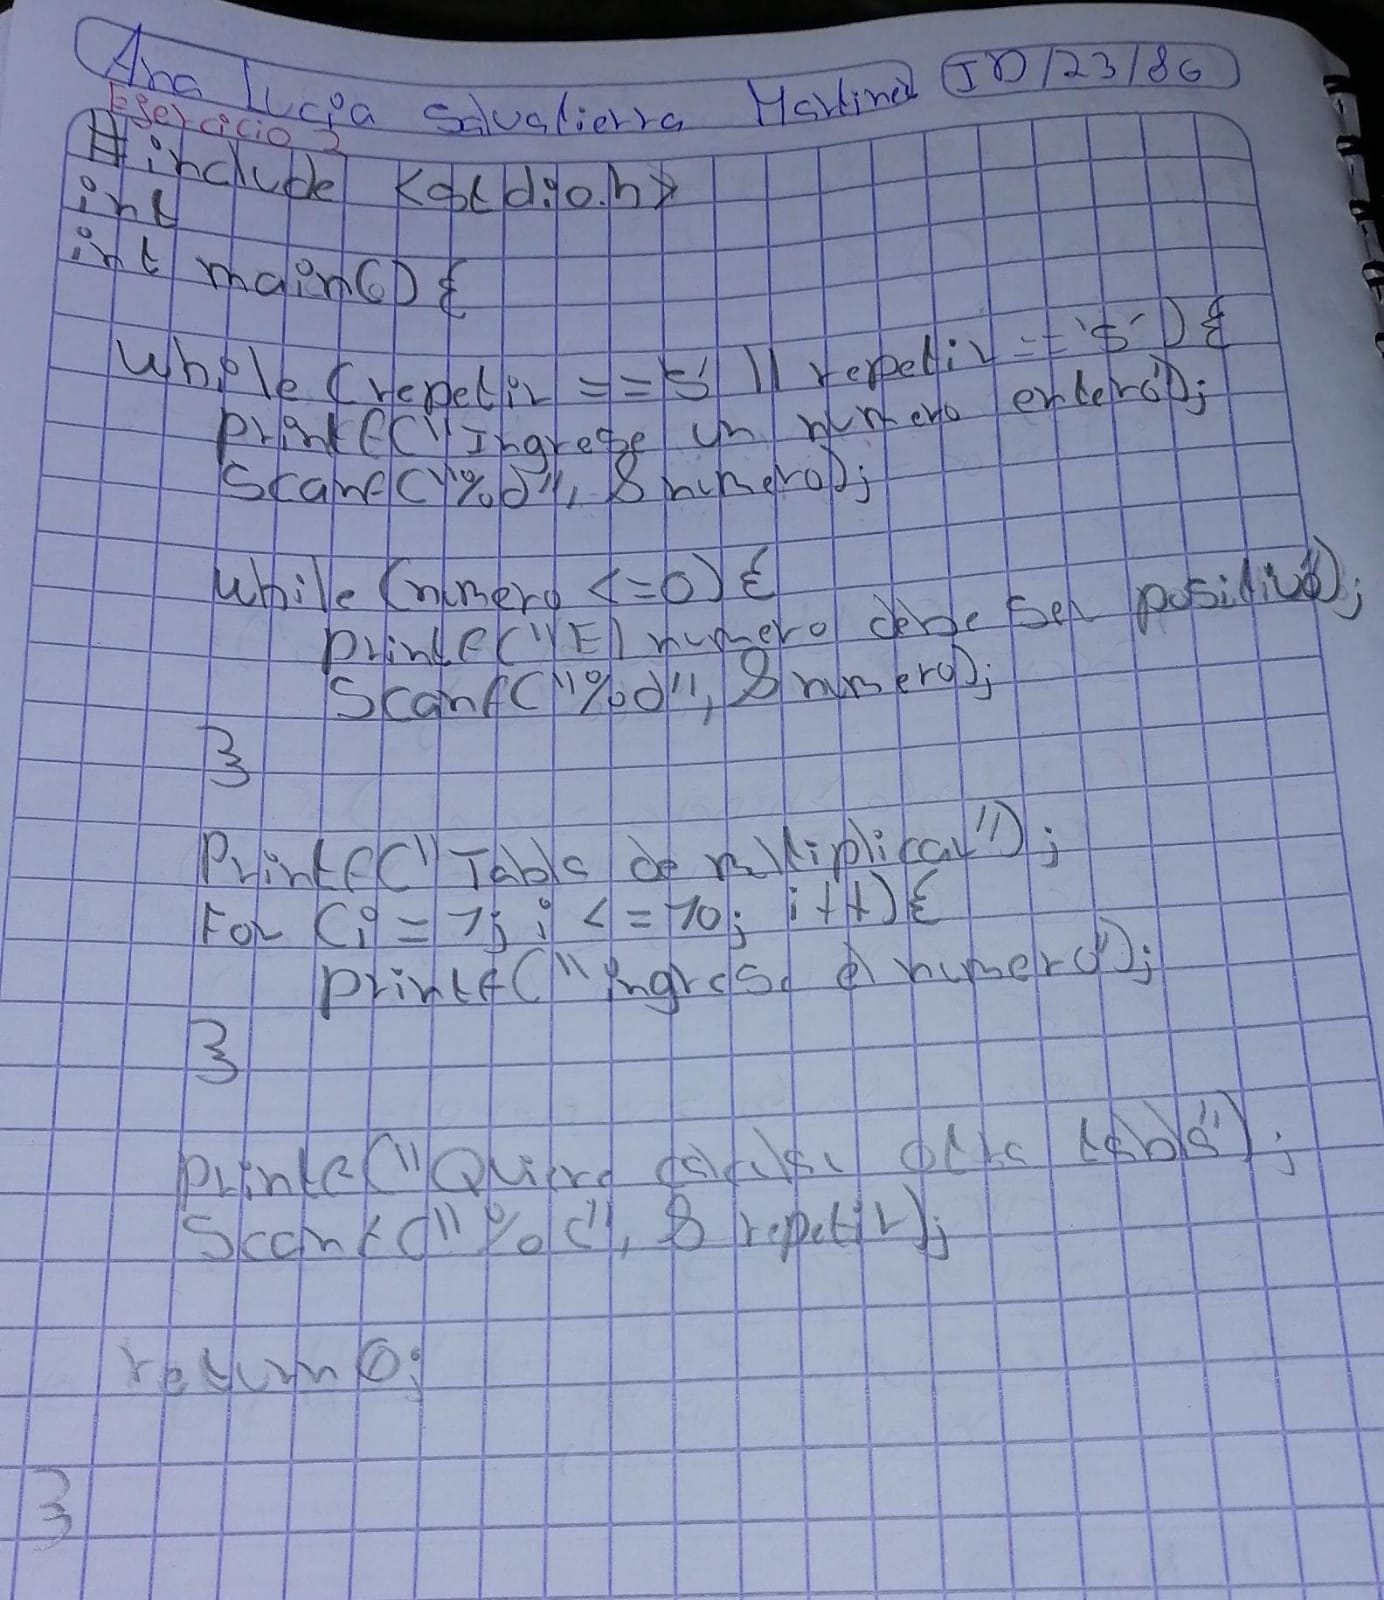 Ana Lucia Salvatierra Martinez ID/23/86
Ejercicio 3
#include <stdio.h>
int
int main() {
while (repetir == 's' || repetir == 's') {
printf("Ingrese un numero entero");
scanf("%d", &numero);
while (numero <=0) {
printf("El numero debe ser positivo");
scanf("%d", &numero);
}
Printf("Tabla de multiplicar");
For (i = 1; i <= 10; i++) {
printf("ingrese el numero");
}
printf("Quiere otra tabla");
Scanf("%c", &repetir);
return 0;
}